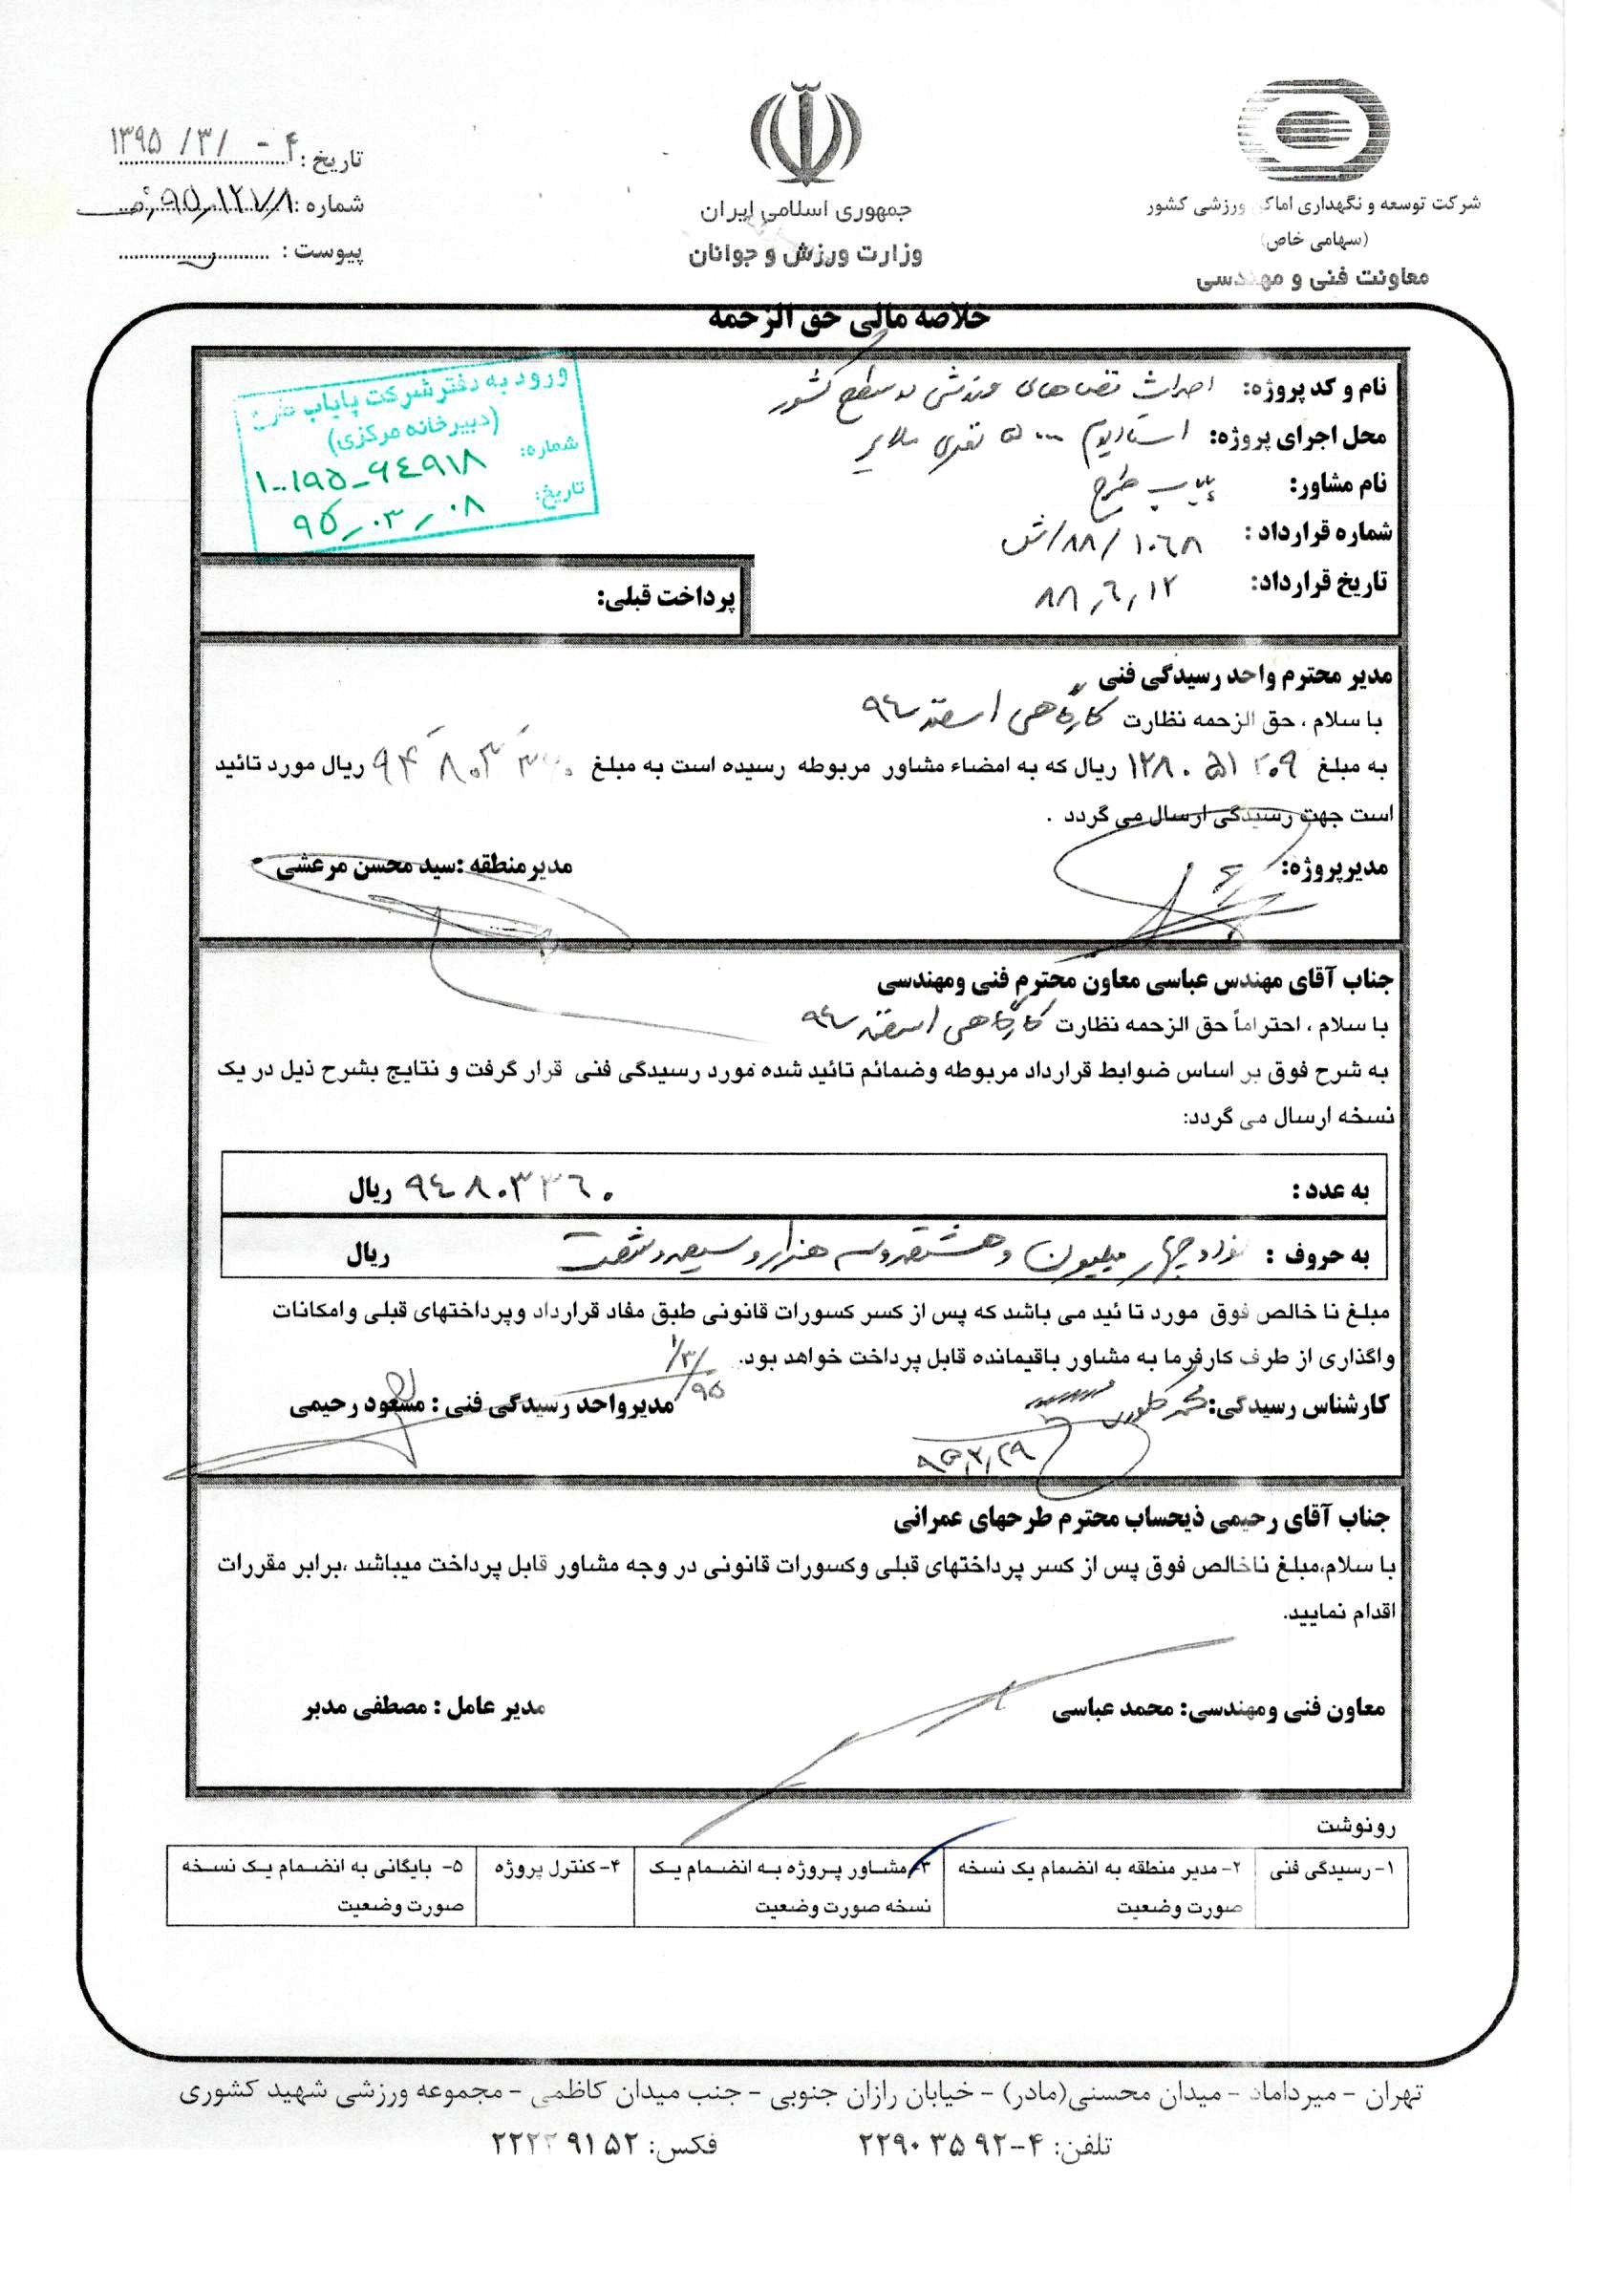 شرکت توسعه و نگهداری اماکن ورزشی کشور
(سهامی خاص)
معاونت فنی و مهندسی
جمهوری اسلامی ایران
وزارت ورزش و جوانان
تاریخ: ۴ - /۳/ ۱۳۹۵
شماره:
پیوست:
خلاصه مالی حق الزحمه
نام و کد پروژه: احداث فضاهای ورزشی در سطح کشور
محل اجرای پروژه: استادیوم ۵۰۰۰ نفری ملایر
نام مشاور: پایاب طرح
شماره قرارداد: ۱۰۶۸/ ۸۸/ش
تاریخ قرارداد: ۸۸٫۶٫۱۲
ورود به دفتر شرکت پایاب طرح
(دبیرخانه مرکزی)
شماره: ۱۰۰۱۹۵-۹۴۹۱۸
تاریخ: ۹۵-۰۳-۰۸
پرداخت قبلی:
مدیر محترم واحد رسیدگی فنی
با سلام ، حق الزحمه نظارت کارگاهی اسفند ۹۴
به مبلغ ۱۲۸۰۵۱۲۰۹ ریال که به امضاء مشاور مربوطه رسیده است به مبلغ ۹۴۸۰۳۳۶۰ ریال مورد تائید
است جهت رسیدگی ارسال می گردد .
مدیرپروژه:
مدیرمنطقه :سید محسن مرعشی
جناب آقای مهندس عباسی معاون محترم فنی ومهندسی
با سلام ، احتراماً حق الزحمه نظارت کارگاهی اسفند ۹۴
به شرح فوق بر اساس ضوابط قرارداد مربوطه وضمائم تائید شده مورد رسیدگی فنی قرار گرفت و نتایج بشرح ذیل در یک
نسخه ارسال می گردد:
به عدد : ۹۴۸۰۳۳۶۰ ریال
به حروف : نود و چهار میلیون و هشتصد و سه هزار و سیصد و شصت ریال
مبلغ نا خالص فوق مورد تا ئید می باشد که پس از کسر کسورات قانونی طبق مفاد قرارداد وپرداختهای قبلی وامکانات
واگذاری از طرف کارفرما به مشاور باقیمانده قابل پرداخت خواهد بود.
۹۵/۳/۱
کارشناس رسیدگی:
مدیرواحد رسیدگی فنی : مسعود رحیمی
جناب آقای رحیمی ذیحساب محترم طرحهای عمرانی
با سلام،مبلغ ناخالص فوق پس از کسر پرداختهای قبلی وکسورات قانونی در وجه مشاور قابل پرداخت میباشد ،برابر مقررات
اقدام نمایید.
معاون فنی ومهندسی: محمد عباسی
مدیر عامل : مصطفی مدبر
رونوشت
۱- رسیدگی فنی
۲- مدیر منطقه به انضمام یک نسخه
صورت وضعیت
۳- مشاور پروژه به انضمام یک
نسخه صورت وضعیت
۴- کنترل پروژه
۵- بایگانی به انضمام یک نسخه
صورت وضعیت
تهران - میرداماد - میدان محسنی(مادر) - خیابان رازان جنوبی - جنب میدان کاظمی - مجموعه ورزشی شهید کشوری
تلفن: ۴-۲۲۹۰۳۵۹۲
فکس: ۲۲۲۳۹۱۵۲